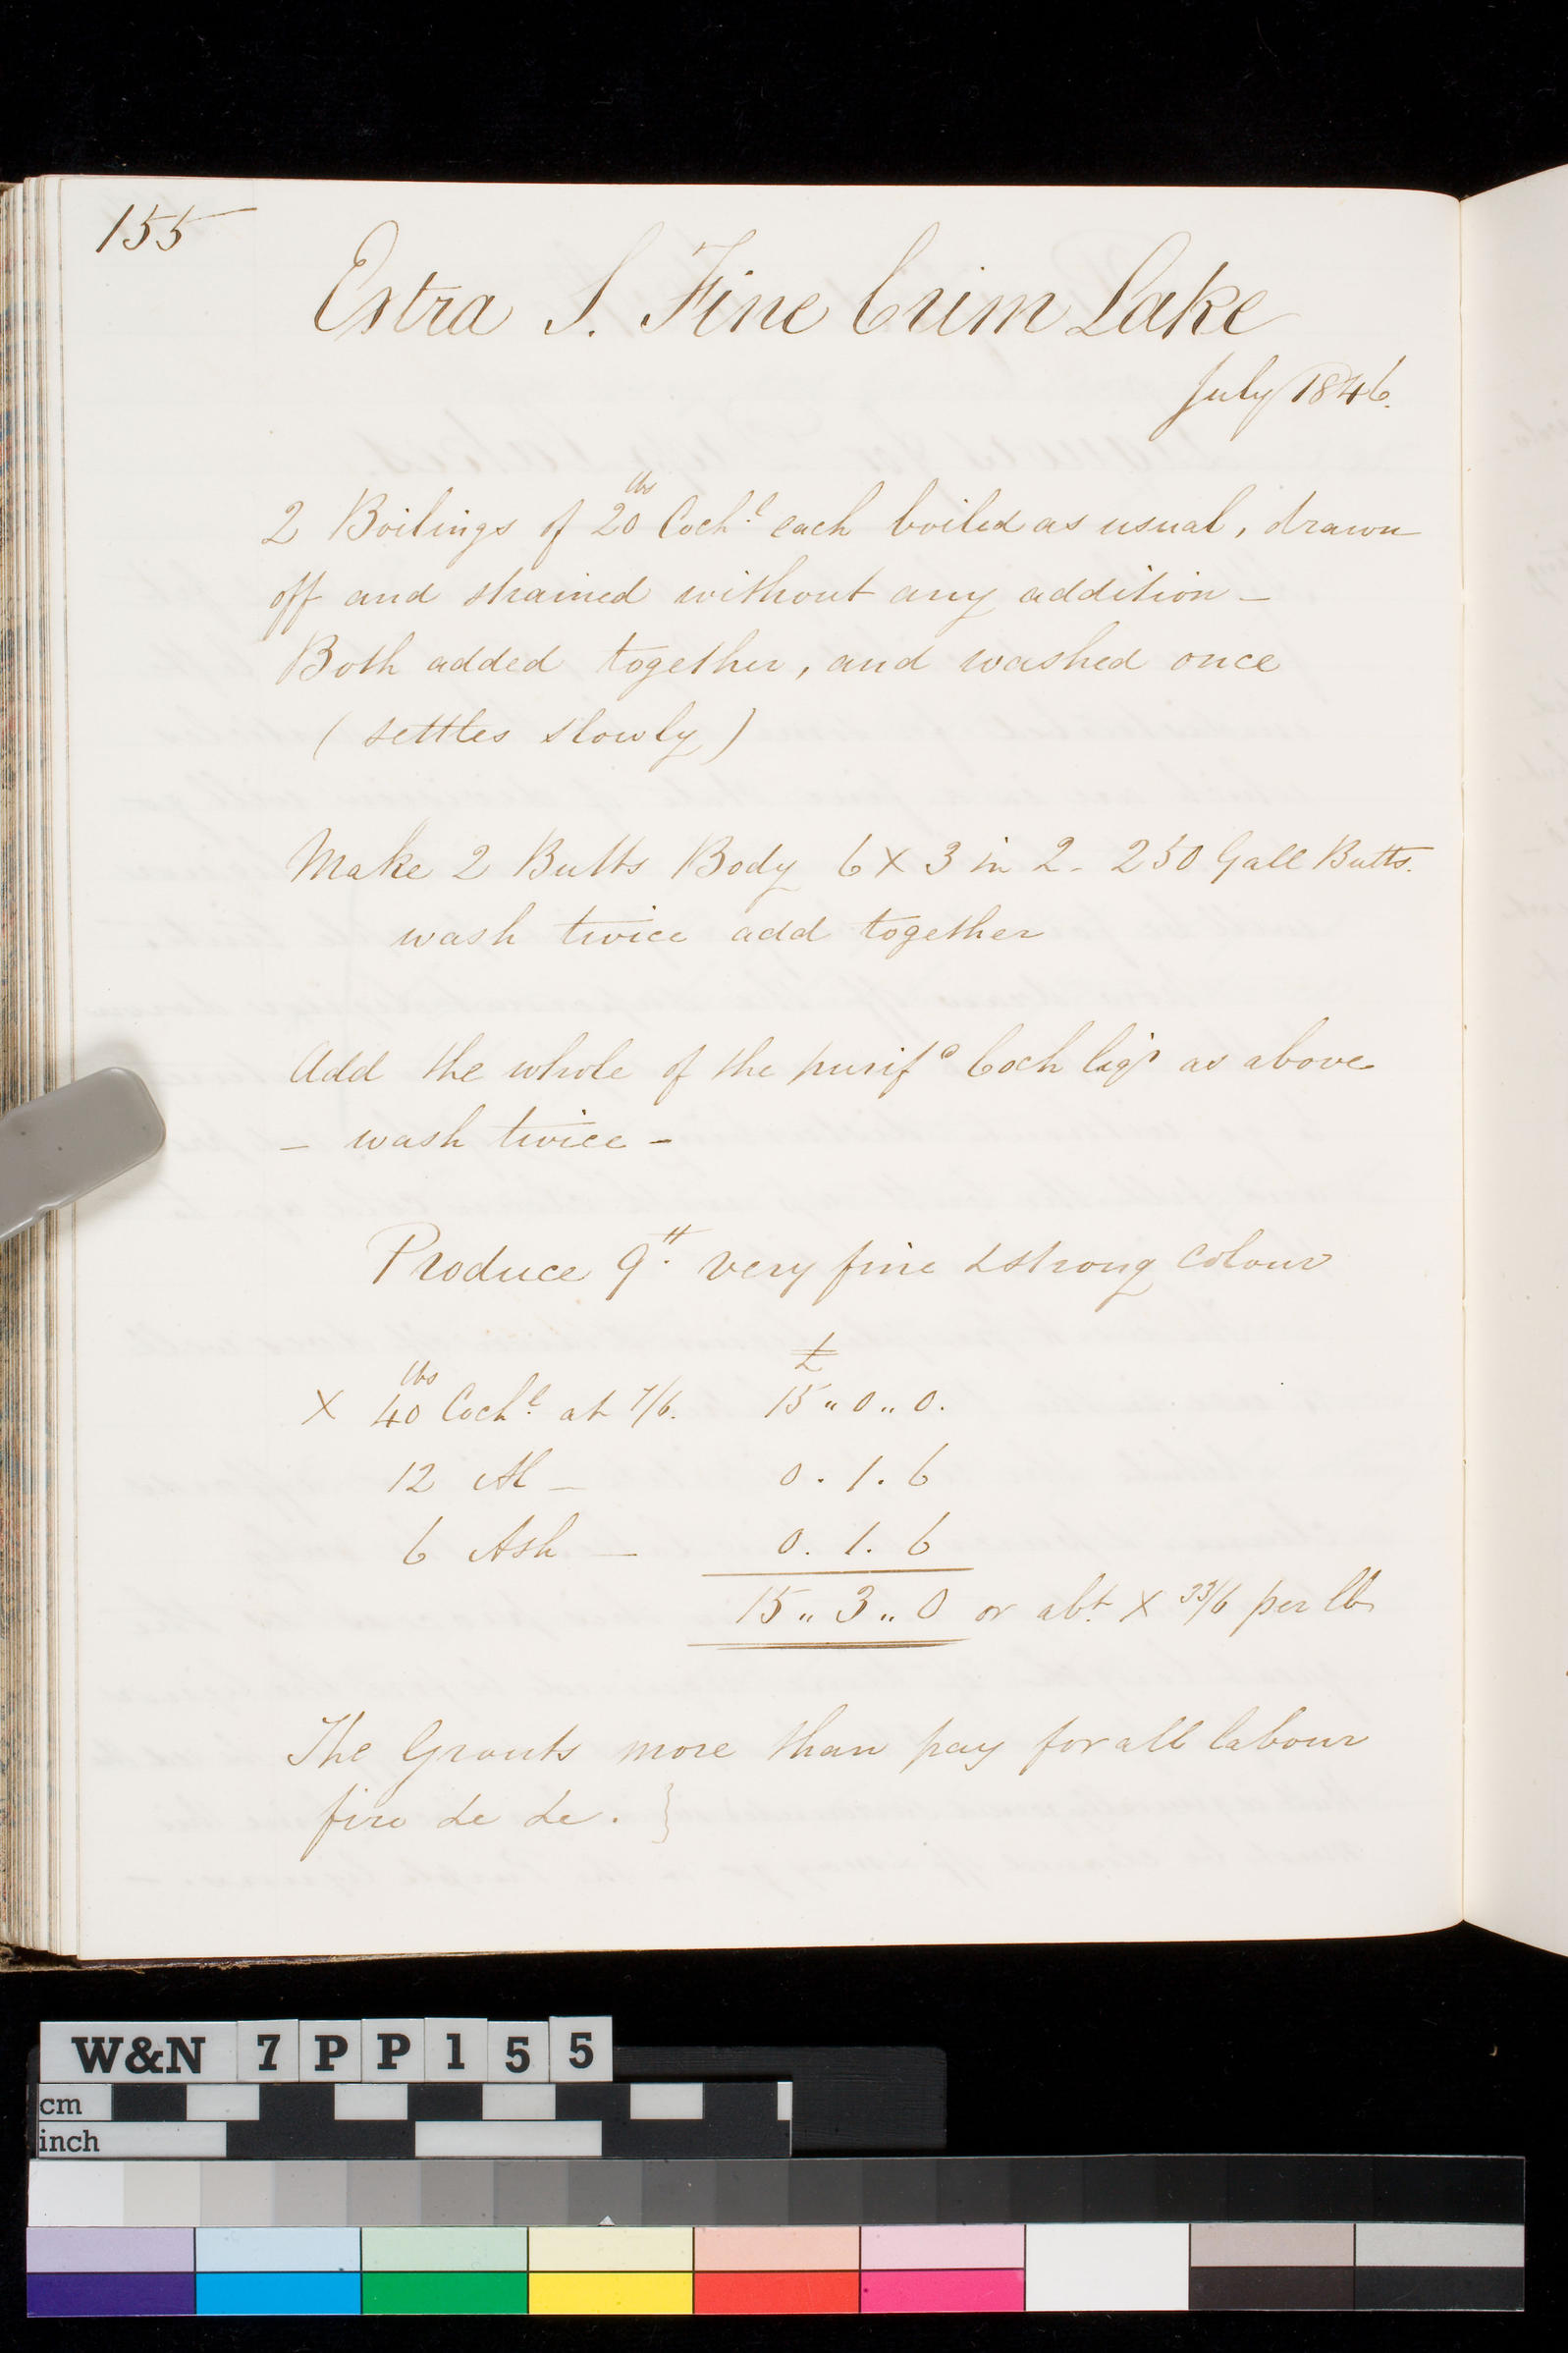 155
Extra S. Fine Crim Lake
July 1846.
2 Boilings of 20 lbs Cochl each boiled as usual, drawn
off and strained without any addition –
Both added together, and washed once
( settles slowly )
Make 2 Butts Body 6 x 3 in 2 - 250 Gall Butts.
wash twice add together
Add the whole of the purifd Coch liqr as above
– wash twice –
Produce 9 lb. very fine & strong colour
£
X 40 lbs Cochl at 7/6. 15 " 0 " 0.
12 Al – 0 . 1 . 6
6 Ash — 0 . 1 . 6
15 " 3 " 0 or abt X 33/6 per lb
The Grouts more than pay for all labour
fire &c &c . }
W&N 7PP155
cm
inch